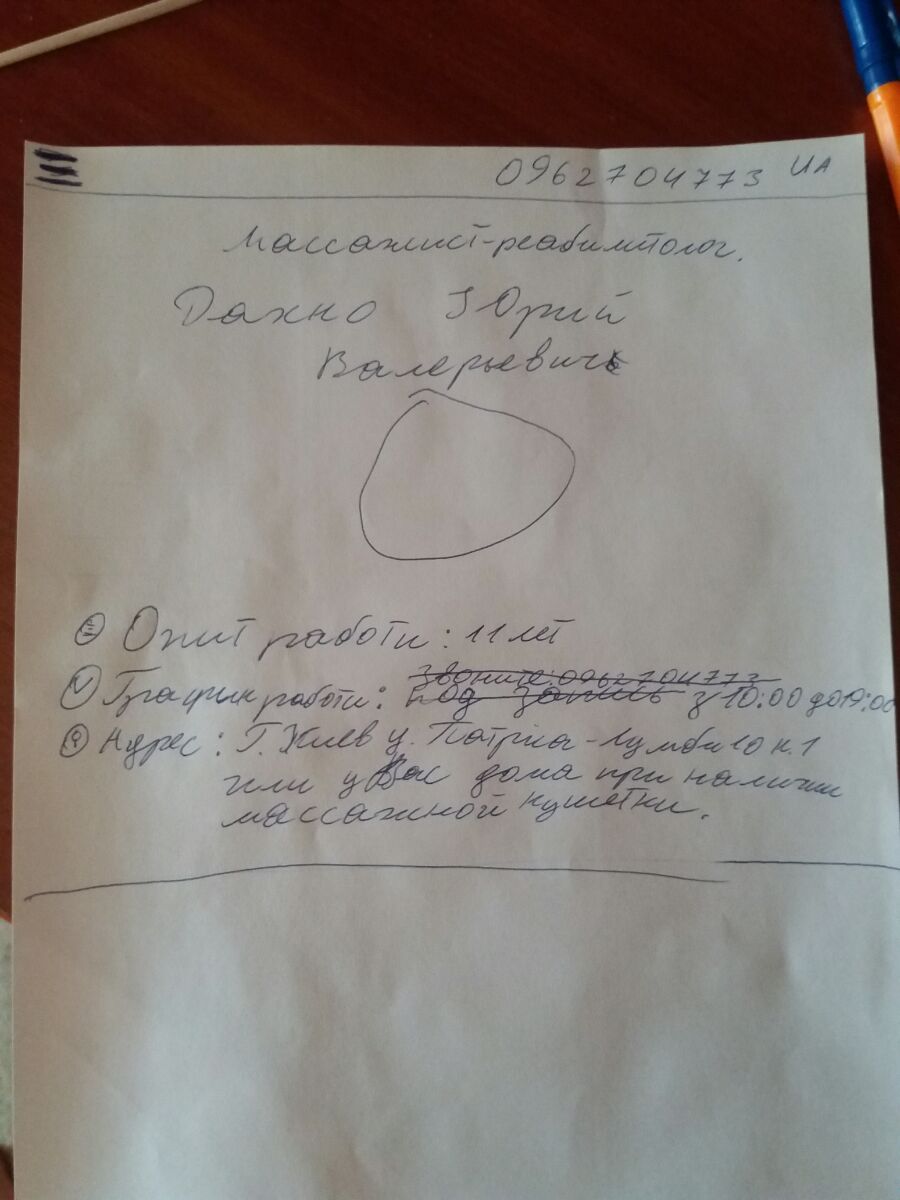 0962704773 UA
Массажист-реабилитолог.
Дахно Юрий
Валерьевич
Опит работи: 11 лет
звоните: 0962704773
График работи: под запись з 10:00 до 19:00
Адрес: Г. Киев у. Патріса-Лумби 10 к. 1
или у Вас дома при наличии
массажной кушетки.